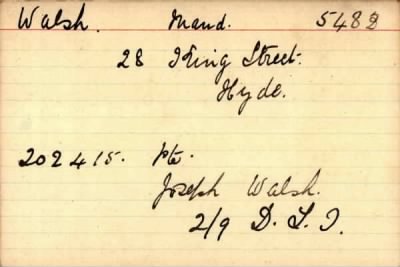 Walsh. Maud. 5482
28 King Street.
Hyde.
202415. Pte.
Joseph Walsh.
2/9 D. L. I.